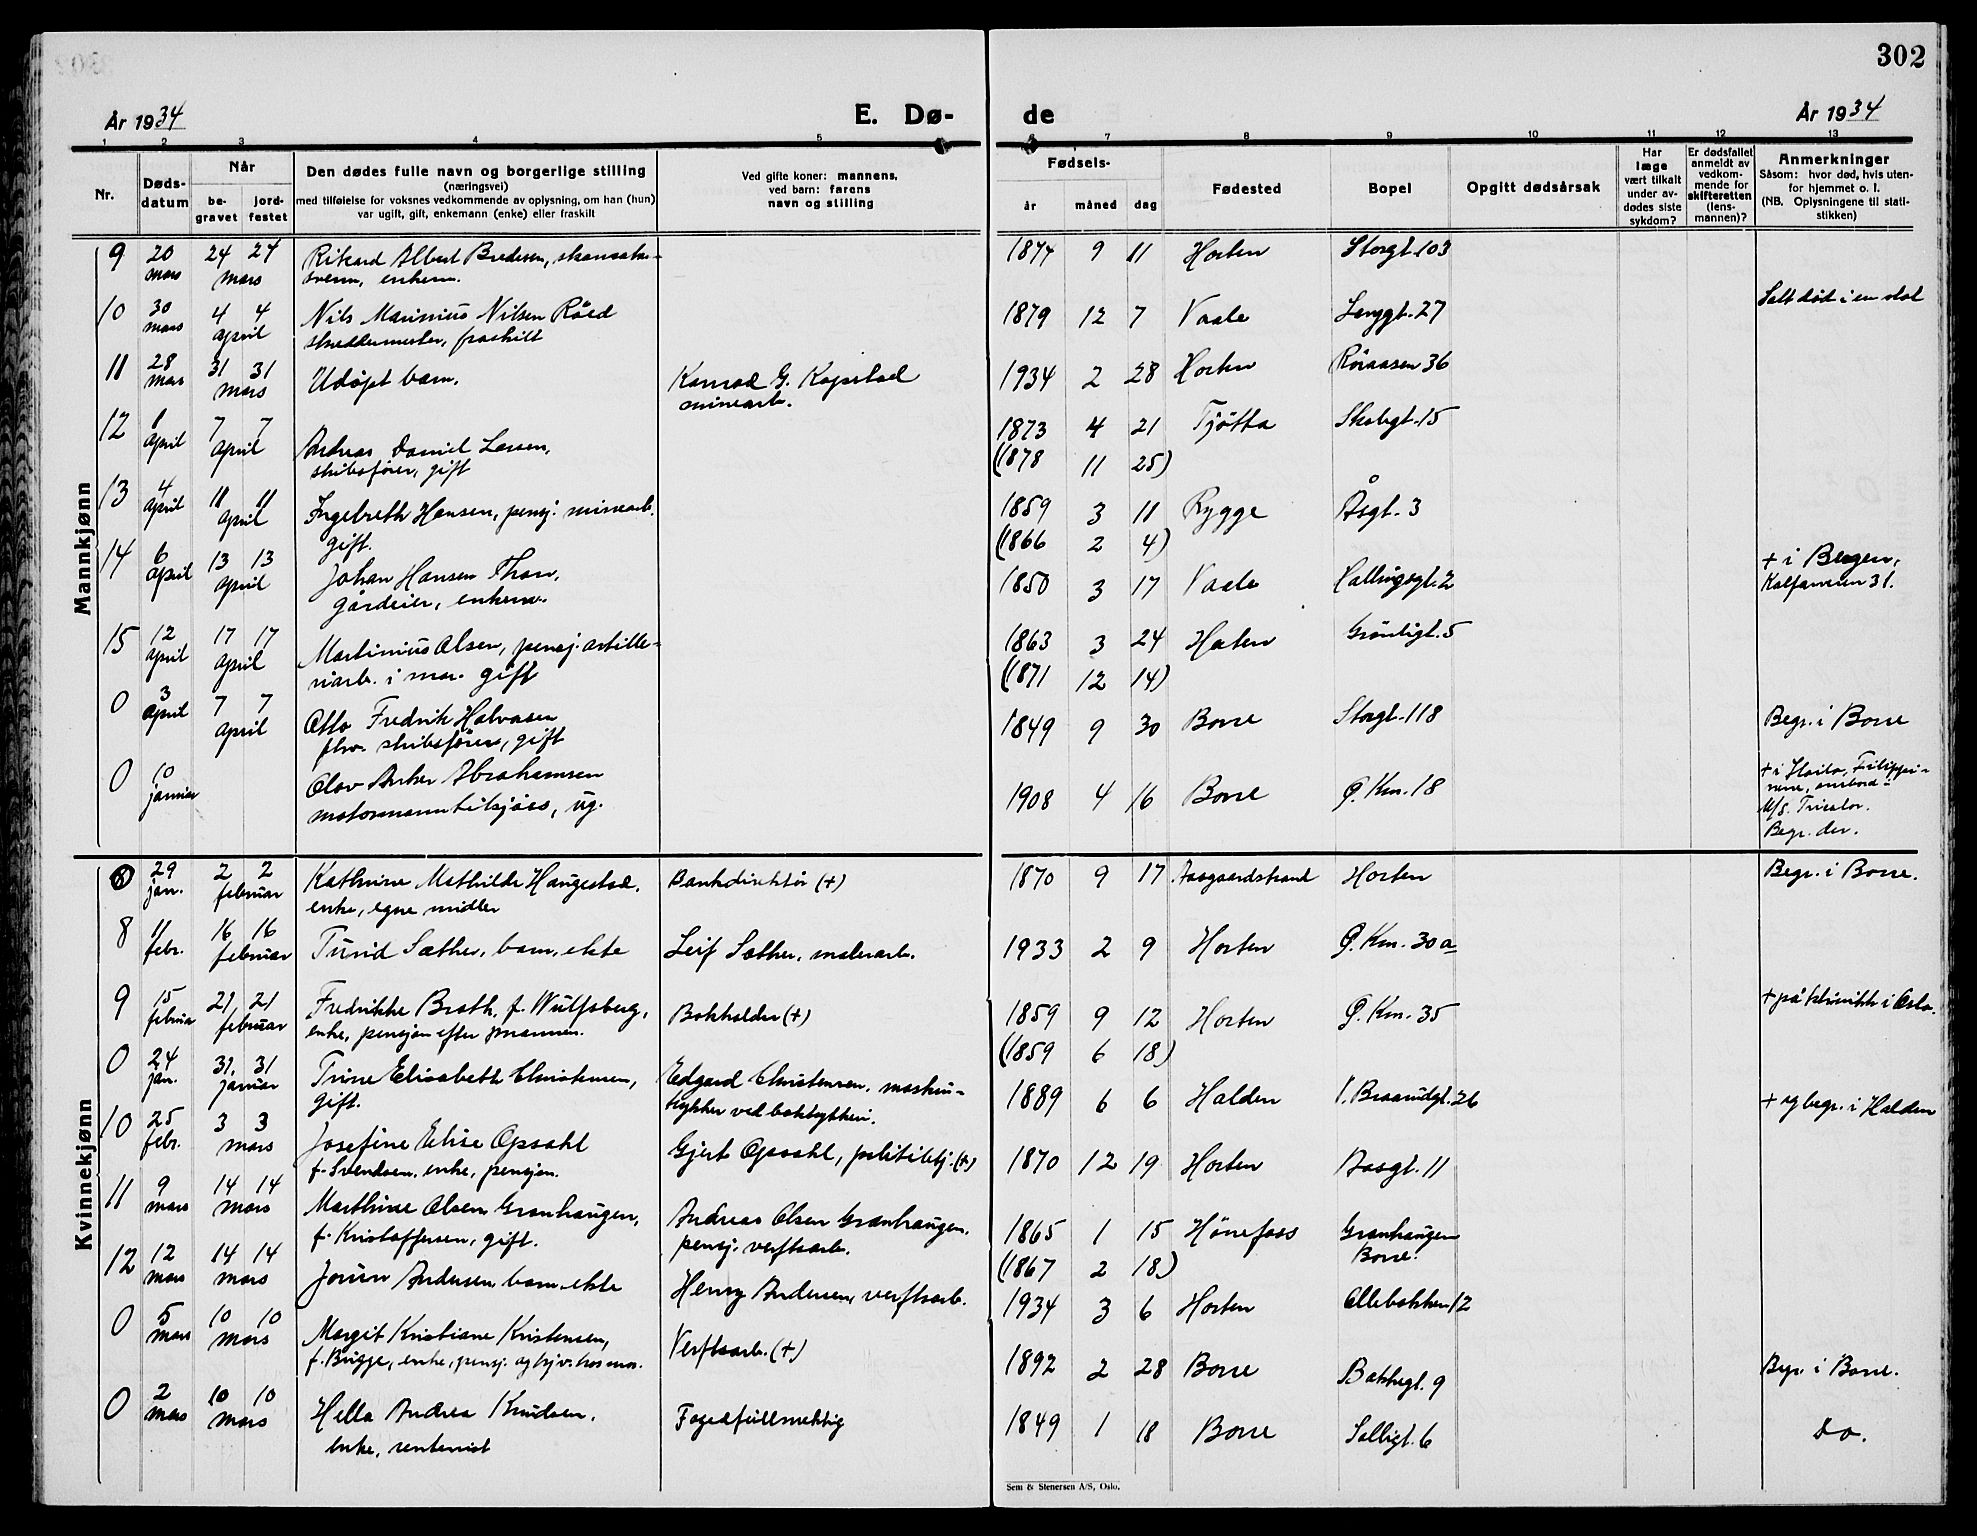 302
År 1934
E. Dø-
de
År 1934
1 2 3 4 5 6 7 8 9 10 11 12 13
Nr.
Døds-
datum
Når
be-
gravet
jord-
festet
Den dødes fulle navn og borgerlige stilling
(næringsvei)
med tilføielse for voksnes vedkommende av oplysning, om han (hun)
var ugift, gift, enkemann (enke) eller fraskilt
Ved gifte koner: mannens,
ved barn: farens
navn og stilling
Fødsels-
år måned dag
Fødested
Bopel
Opgitt dødsårsak
Har
læge
vært tilkalt
under av-
dødes siste
sykdom?
Er dødsfallet
anmeldt av
vedkom-
mende for
skifteretten
(lens-
mannen)?
Anmerkninger
Såsom: hvor død, hvis uten-
for hjemmet o. l.
(NB. Oplysningene til stati-
stikken)
Mannkjønn
9 20 24 24 Rikard Albert Bredesen, 1874 9 11 Horten Storgt. 103
mars mars svenn, enkem.
10 30 4 4 Nils Marinius Nilsen Röed 1879 12 7 Vaale Langgt. 27 Satt død i en stol
mars april skreddermester, fraskilt
11 28 31 31 Udöpt barn. Konrad G. Kopstad 1934 2 28 Horten Röraasen 36
mars mars minearb.
12 1 7 7 Andreas Daniel Larsen, 1873 4 21 Tjötta Skolegt. 15
april april skibsförer, gift (1878 11 25)
13 4 11 11 Ingebreth Hansen, pensj. minearb. 1859 3 11 Rygge Åsgt. 3
april april gift. (1866 2 4)
14 6 13 13 Johan Hansen Thon, 1850 3 17 Vaale 2 + i Bergen,
april april gårdeier, enkem. Kalfarveien 31.
15 12 17 17 Martinius Olsen, pensj. artille- 1863 3 24 Horten Grönligt. 5
april april riarb. i mar. gift (1871 12 14)
0 3 7 7 Otto Fredrik Halvorsen 1849 9 30 Borre Storgt. 118 Begr. i Borre
april april fhv. skibsförer, gift
0 10 Olav Anker Abrahamsen 1908 4 16 Borre Ø. Km. 18 + i Iloilo, Filippi-
januar motormann tilsjöss, ug. nene, ombord i
M/S. Tricolor.
Begr. der.
Kvinnekjønn
29 2 2 Kathrine Mathilde Haugestad, Bankdirektör (+) 1870 9 17 Aasgaardstrand Horten Begr. i Borre.
jan. februar enke, egne midler
8 11 16 16 Turid Sæther, barn, ekte Leif Sæther, malerarb. 1933 2 9 Horten Ø. Km. 30a
febr. februar
9 15 21 21 Fredrikke Broth, f. Wulfsberg, Bokholder (+) 1859 9 12 Horten Ø. Km. 35 + på klinikk i Oslo.
februar februar enke, pensjon efter mannen. (1859 6 18)
0 24 31. 31 Trine Elisabeth Christensen, Edgard Christensen, maskin- 1889 6 6 Halden V. Braarudgt. 26 + og begr. i Halden
jan. januar gift. trykker ved boktrykkeri.
10 25 3 3 Josefine Elise Opsahl Gjert Opsahl, politibetj. (+) 1870 12 19 Horten Aasgt. 11
febr. mars f. Svendsen, enke, pensjon.
11 9 14 14 Marthine Olsen Granhaugen, Andreas Olsen Granhaugen, 1865 1 15 Hönefoss Granhaugen
mars mars f. Kristoffersen, gift. pensj. verftsarb. (1867 2 18) Borre.
12 12 14 14 Jorun Andersen barn ekte Henry Andersen, verftsarb. 1934 3 6 Horten Ollebakken 12
mars mars
0 5 10 10 Margit Kristiane Kristensen, Verftsarb. (+) 1892 2 28 Borre Bakkegt. 9 Begr. i Borre.
mars mars f. Bugge, enke, pensj. og hos mor.
0 2 10 10 Hella Andrea Knudsen, Fogedfullmektig 1849 1 18 Borre Solligt. 6 do.
mars mars enke, rentenist
Sem & Stenersen A/S, Oslo.